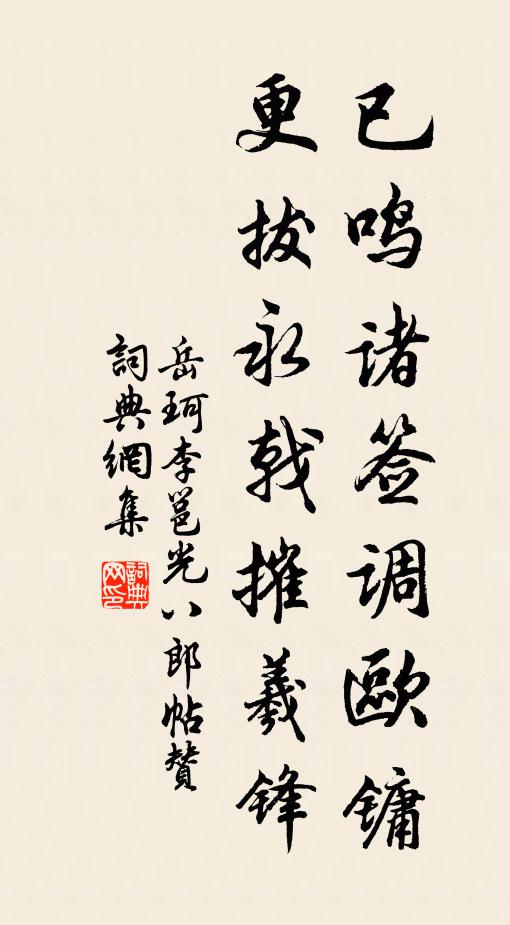 已鸣诸签调歐镛
更拔永戟摧羲锋
岳珂李邕光八郎帖赞
詞典網集
詞典网印